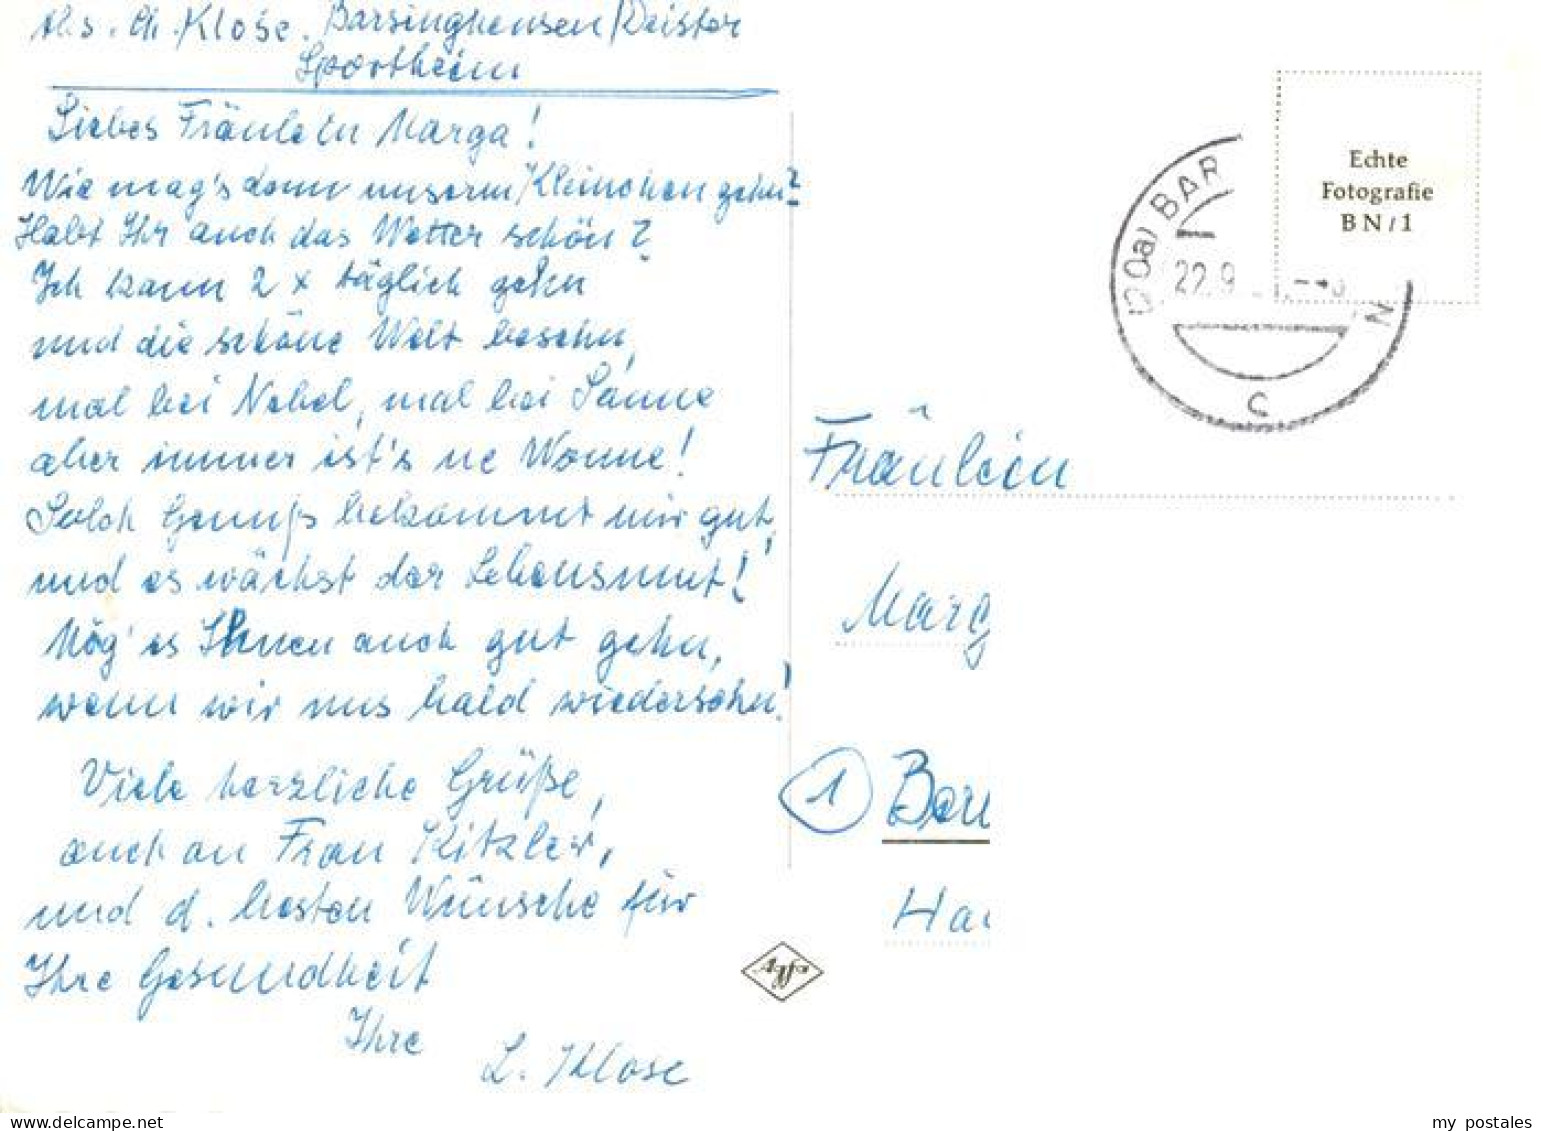 Abs. Ch. Klose. Barsinghausen/Deister
Sportheim
Liebes Fräulein Marga!
Wie mag's denn unserm Kleinchen gehn?
Habt Ihr auch das Wetter schön?
Ich kann 2 x täglich gehn
und die schöne Welt besehn,
mal bei Nebel, mal bei Sonne
aber immer ist's ne Wonne!
Solch Genuß bekommt mir gut,
und es wächst der Lebensmut!
Mög' es Ihnen auch gut gehn,
wenn wir uns bald wiedersehn!
Viele herzliche Grüße,
auch an Frau Kitzler,
und d. besten Wünsche für
Ihre Gesundheit
Ihre
L. Klose
Echte
Fotografie
BN/1
BAR
22.9
N
c
Fräulein
Marg
1 Berl
Ha
Agfa
delcampe.net
my_postales